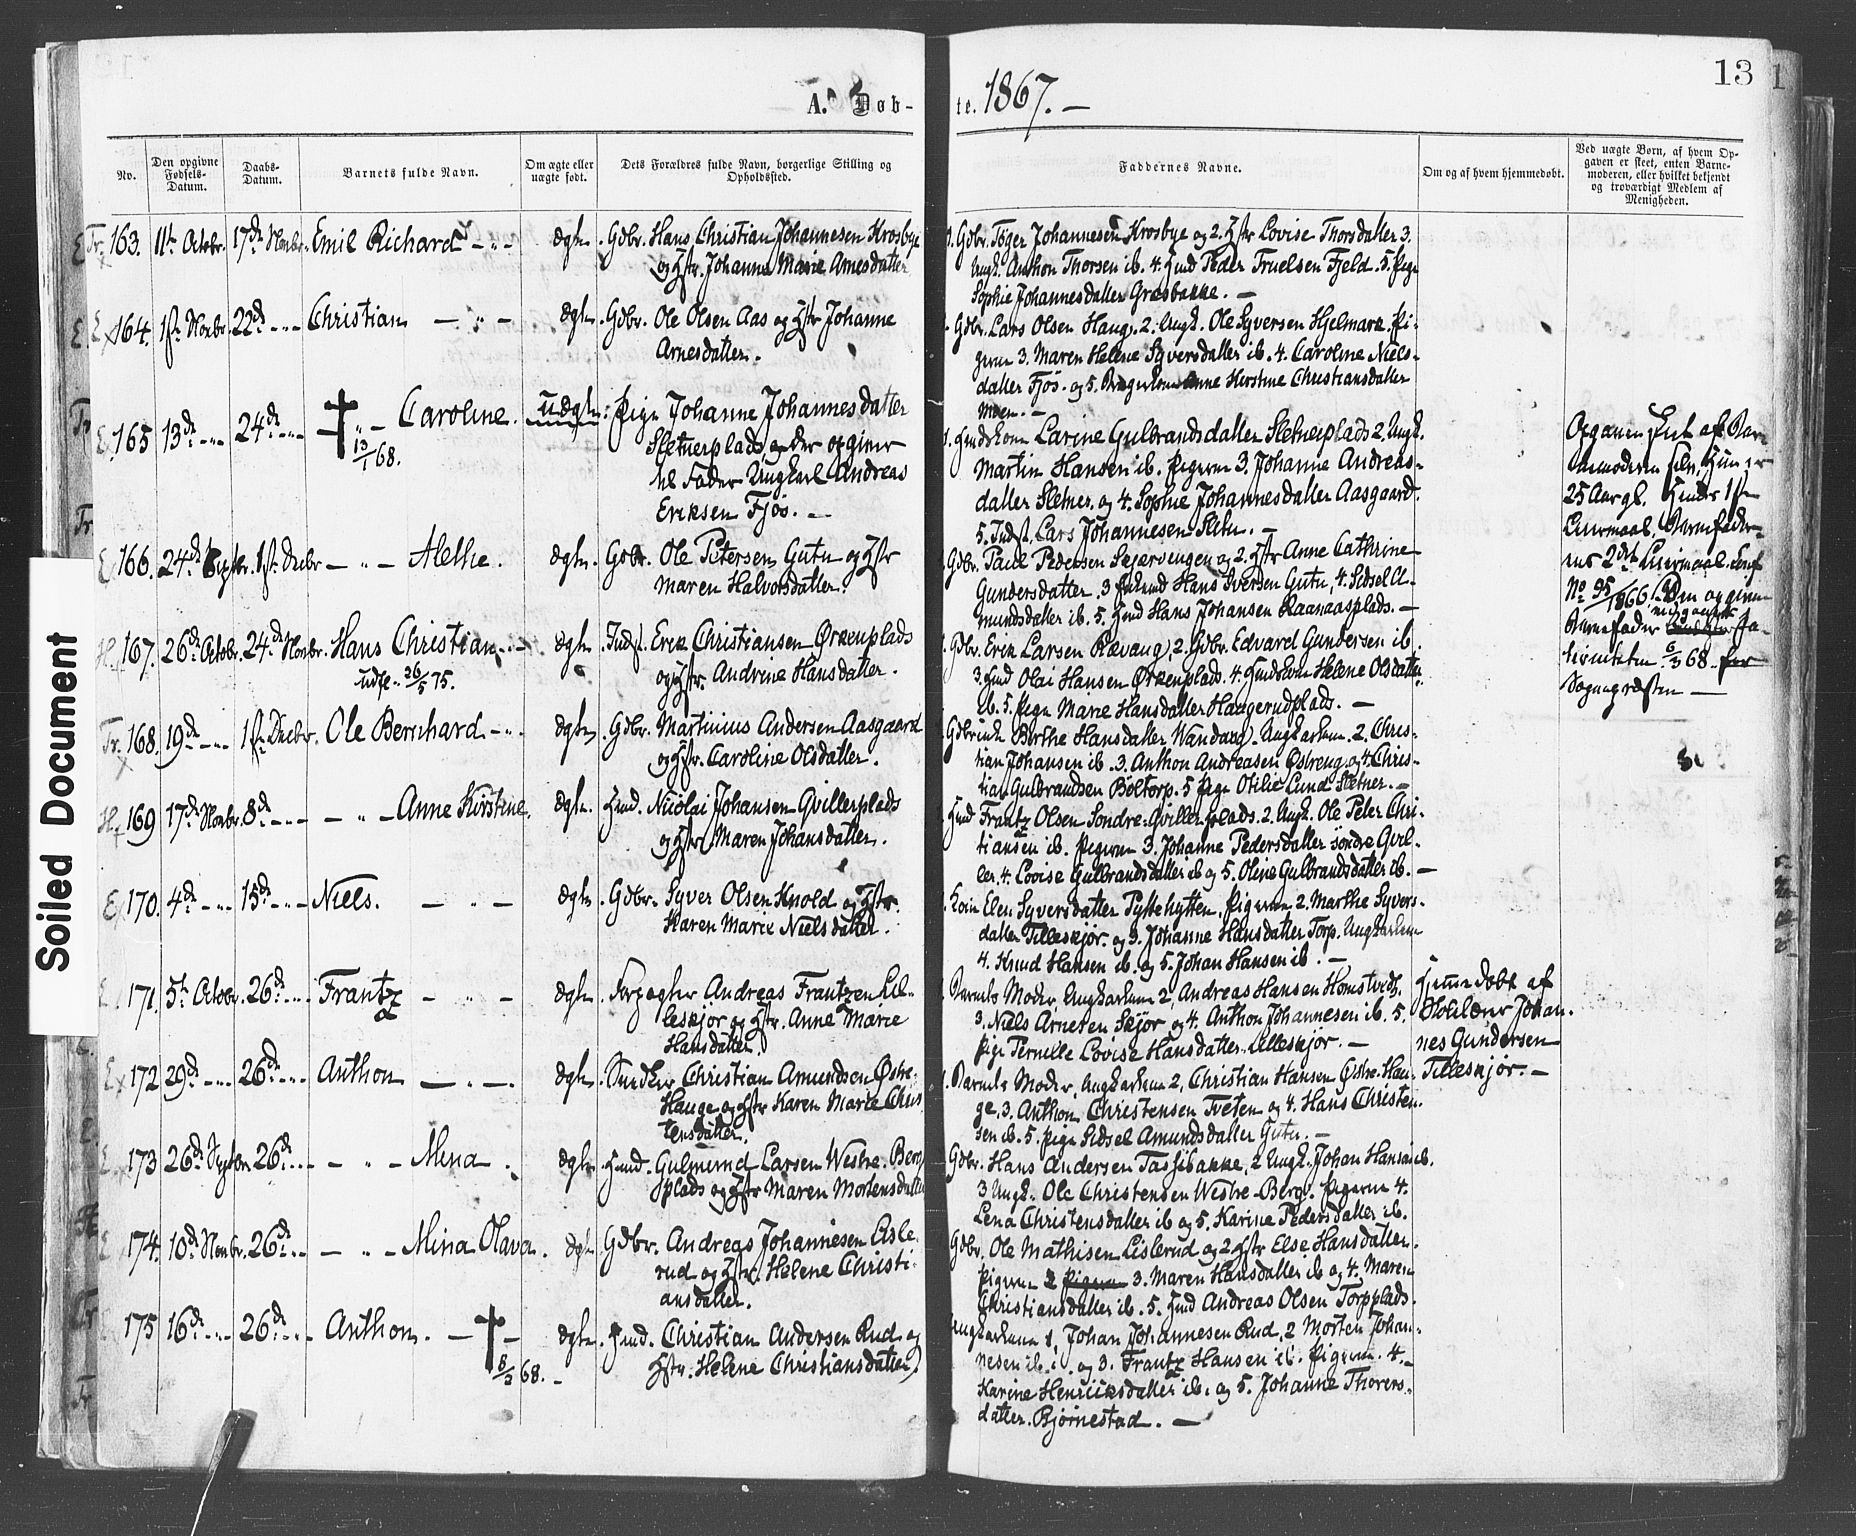 13
A. Døb-
te. 1867. —
No.
Den opgivne Fødsels-Datum.
Daabs-Datum.
Barnets fulde Navn.
Om ægte eller uægte født.
Dets Forældres fulde Navn, borgerlige Stilling og Opholdssted.
Faddernes Navne.
Om og af hvem hjemmedøbt.
Ved uægte Børn, af hvem Op-
gaven er skeet, enten Barne-
moderen, eller hvilket bekjendt
og troværdigt Medlem af
Menigheden.
Soiled Document
Tr. 163. 11te Octobr. 17de Novbr. Emil Richard — ægte. Gdbr. Hans Christian Johannesen Krosbye
og Hstr. Johanne Marie Arnesdatter
Gdbr. Töger Johannesen Krosbye og 2. Hstr Lovise Thorsdatter 3.
Ungk. Anthon Thorsen ib. 4. Hmd Peder Truelsen Fjeld. 5. Pige
Sophie Johannesdatter Græsbakke. —
E 164. 1ste Novbr. 22de Christian — ægte. Gdbr. Ole Olsen Aas og Hstr Johanne
Arnesdatter.
Gdbr. Lars Olsen Haug. 2. Ungk. Ole Syversen Hjelmark. Pi-
gerne 3. Maren Helene Syversdatter ib. 4. Caroline Niels-
datter Fjös. og 5. Anne Kirstine Christiansdatter
Moen. —
E. 165 13de 24de † Caroline. uægte: Pige Johanne Johannesdatter
13/1 68.
Sletnerplads, og der opgiver
til Fader Ungkarl Andreas
Eriksen Fjös. —
Hmdskone Larine Gulbrandsdatter Sletnerplads 2. Ungk.
Martin Hansen ib. Pigerne 3. Johanne Andreas-
datter Sletner. og 4. Sophie Johannesdatter Aasgaard.
5. Indst. Lars Johannesen Sletn. —
Opgaven skeet af Bar-
nemoderen selv, Hun er
25 Aar gl. Hendes 1ste
Leiermaal. Barnefade-
rens 2det Leiermaal.
No 95/1866. Den opgivne
Barnefader Pa-
terniteten 6/3 68. for
Sognepræsten —
E 166. 24de Septbr. 1ste Decbr — Alethe. ægte. Gdbr. Ole Petersen Gutu og Hstr
Maren Halvorsdatter.
Gdbr. Paul Pedersen Sejersengen og 2. Hstr Anne Cathrine
Gundersdatter. 3 Hans Iversen Gutu, 4. Sidsel A-
mundsdatter ib. 5. Hmd Hans Johansen Raanaasplads. —
H 167. 26de Octobr. 24de Novbr. Hans Christian ægte. Indst. Erik Christiansen Ørkenplads
udfl. 26/5 75.
og Hstr. Andrine Hansdatter.
Gdbr. Erik Larsen Rævaug, 2. Gdbr. Edvard Gundersen ib
3. Hmd Olai Hansen Ørkenplads. 4. Hmdskone Helene Olsdatter
ib. 5. Pige Marie Hansdatter Haugerudplads. —
Tr. 168. 19de 1ste Decbr. Ole Bernhard ægte. Gdbr. Martinius Andersen Aasgaard
og Hstr. Caroline Olsdatter.
Berthe Hansdatter Vandaag. Ungkarlene. 2. Chris-
tian Johansen ib. 3. Anthon Andreasen Østreng. og 4. Chris-
tian Gulbrandsen Böltorp. 5 Pige Otilie Lund Sletner. —
H 169 17de Novbr. 8de Anne Kirstine. ægte. Hmd. Nicolai Johansen Gvillerplads
og Hstr Maren Johansdatter.
Hmd Frantz Olsen Söndre-Gvillerplads. 2. Ungk. Ole Peter Chri-
tiansen ib. Pigerne 3. Johanne Pedersdatter söndre Gvil-
ler. 4. Lovise Gulbrandsdatter ib og 5. Oline Gulbrandsdatter ib. —
E 170. 4de 15de Niels. ægte. Gdbr. Syver Olsen Knold og Hstr.
Karen Marie Nielsdatter.
Elen Syversdatter Pyttehytten. Pigerne 2. Marthe Syvers-
datter Tilleskjör. og 3. Johanne Hansdatter Torp. Ungkarlene
4. Knud Hansen ib. og 5. Johan Hansen ib. —
171. 5te Octobr. 26de Frantz ægte. Forpagter Andreas Frantzen Lil-
leskjör og Hstr. Anne Marie
Hansdatter.
Barnets Moder, Ungkarlene 2, Andreas Hansen Homstvedt.
3. Niels Arnesen Skjör og 4. Anthon Johannesen ib. 5.
Pige Pernille Lovise Hansdatter Lilleskjör. —
Hjemmedöbt af
Skolelærer Johan-
nes Gundersen
Tilleskjör. —
E 172 29de 26de Anthon ægte. Snedker Christian Amundsen Østre-
Hauge og Hstr Karen Marie Chris
tensdatter.
Barnets Moder, Ungkarlene 2, Christian Hansen Østre-Hau-
ge. 3. Anthon Christensen Tveten og 4. Hans Christen-
sen ib. 5. Pige Sidsel Amundsdatter Gutu. —
173 26de Septbr. 26de Mina. ægte. Hmd. Gulmund Larsen Westre-Berg
plads og Hstr Maren Mortensdatter
Gdbr. Hans Andersen Tassebakke, 2 Ungk. Johan Hansen ib.
3 Ungk. Ole Christensen Westre-Berg. Pigerne 4.
Lena Christensdatter ib og 5. Karine Pedersdatter ib.
174. 10de Novbr. 26de Mina Olava. ægte. Gdbr. Andreas Johannesen Lisle-
rud og Hstr. Helene Christi-
ansdatter.
Gdbr. Ole Mathisen Lislerud og 2 Hstr Else Hansdatter.
Pigerne 3. Maren Hansdatter ib og 4. Maren
Christiansdatter ib. 5. Hmd Andreas Olsen Torpplads.
175 16de 26de Anthon. † ægte. Hmd. Christian Andersen Rud og
8/2 68.
Hstr. Helene Christiansdatter.
Ungkarlene 1, Johan Johannesen Rud, 2 Morten Johan-
nesen ib. og 3. Frantz Hansen ib. Pigerne. 4.
Karine Henriksdatter ib. og 5. Johanne Thorers-
datter. Bjørnestad. —